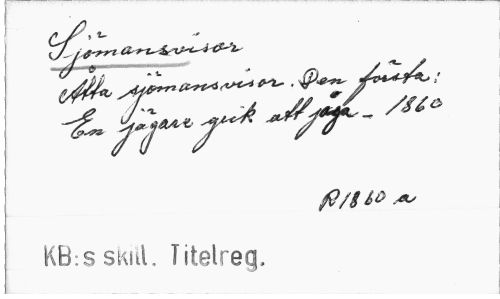 Sjömansvisor
Åtta sjömansvisor. Den första:
En jägare gick att jaga - 1860
R1860 a
KB:s skill. Titelreg.